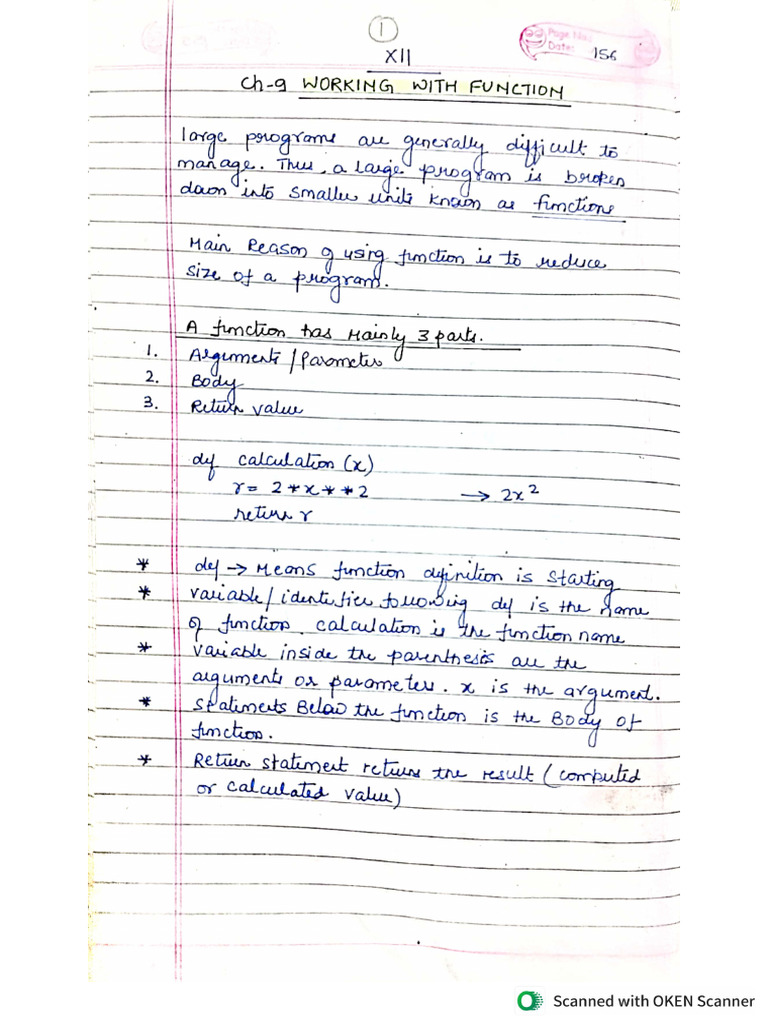 1
Page No.
Date: 156
XII
Ch-9 WORKING WITH FUNCTION
large programs are generally difficult to
manage. Thus, a large program is broken
down into smaller units known as functions
Main Reason of using function is to reduce
size of a program.
A function has Mainly 3 parts.
1. Arguments/Parameter
2. Body
3. Return value
def calculation (x)
r = 2*x**2 → 2x²
return r
* def → Means function definition is starting
* variable/identifier following def is the name
of function. calculation is the function name
* variable inside the parenthesis are the
arguments or parameters. x is the argument.
* statements Below the function is the Body of
function.
* Return statement returns the result (computed
or calculated value)
Scanned with OKEN Scanner